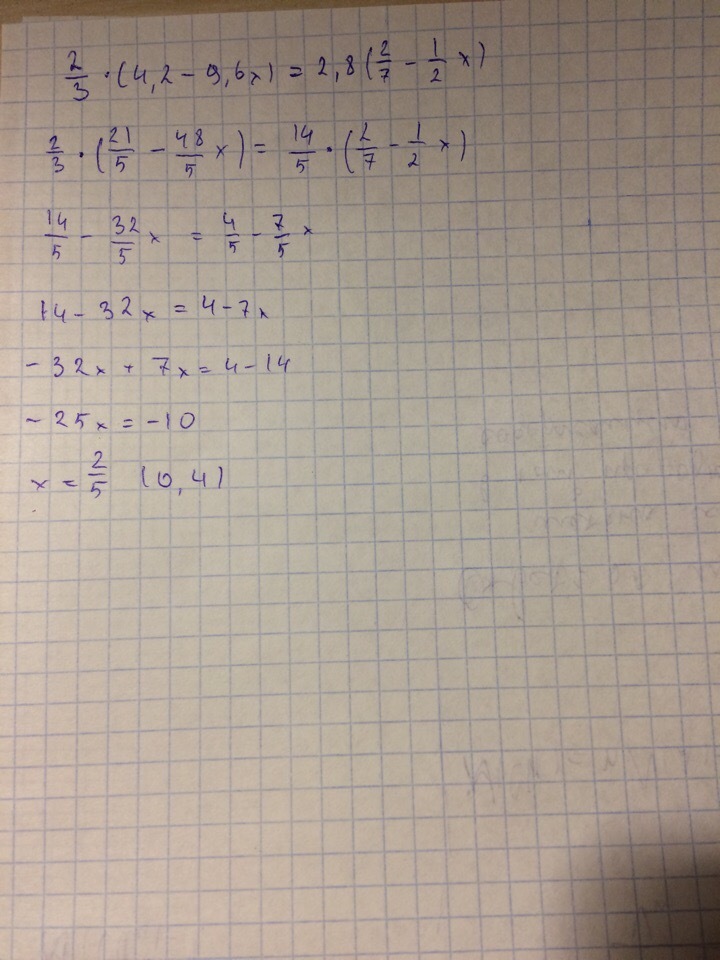 2/3 · (4,2 - 9,6x) = 2,8(2/7 - 1/2 x)
2/3 · (21/5 - 48/5 x) = 14/5 · (2/7 - 1/2 x)
14/5 - 32/5 x = 4/5 - 7/5 x
14 - 32x = 4 - 7x
- 32x + 7x = 4 - 14
- 25x = -10
x = 2/5 (0,4)